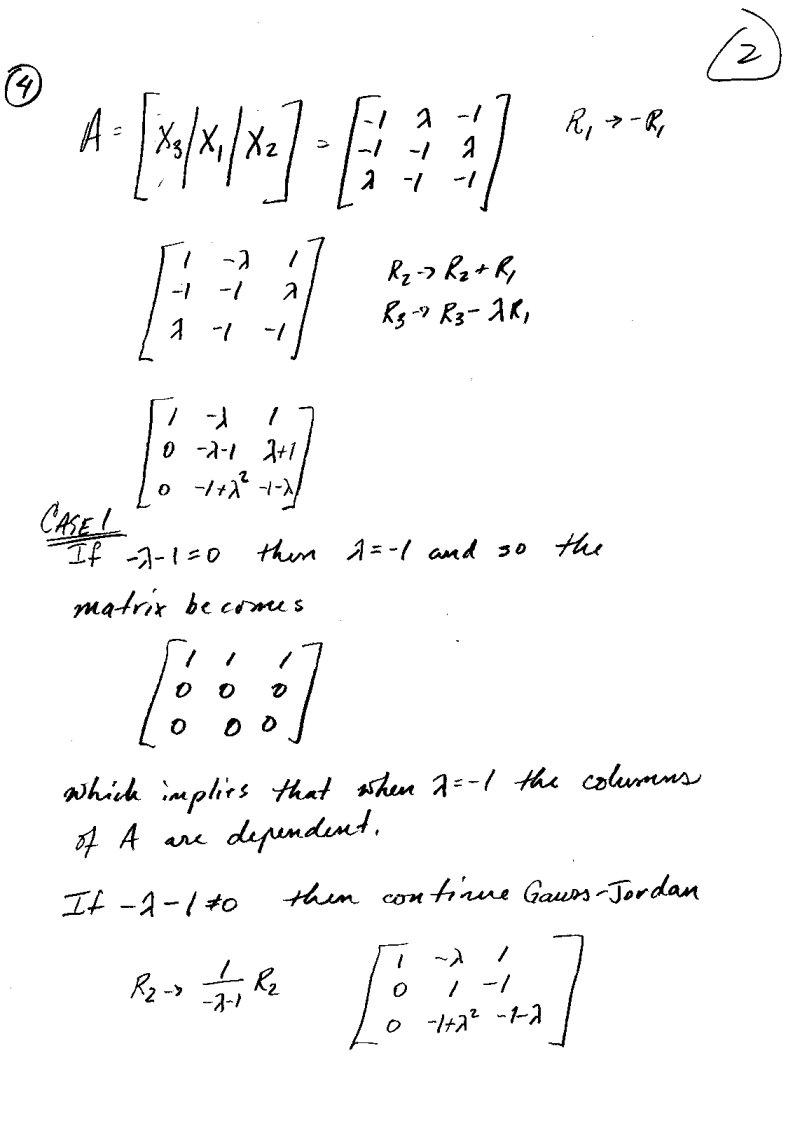 2
4
A = [X₃|X₁|X₂] = [-1 λ -1; -1 -1 λ; λ -1 -1] R₁ → -R₁
[1 -λ 1; -1 -1 λ; λ -1 -1] R₂ → R₂ + R₁
R₃ → R₃ - λR₁
[1 -λ 1; 0 -λ-1 λ+1; 0 -1+λ² -1-λ]
CASE 1
If -λ-1=0 then λ=-1 and so the
matrix becomes
[1 1 1; 0 0 0; 0 0 0]
which implies that when λ=-1 the columns
of A are dependent.
If -λ-1≠0 then continue Gauss-Jordan
R₂ → 1/(-λ-1) R₂ [1 -λ 1; 0 1 -1; 0 -1+λ² -1-λ]